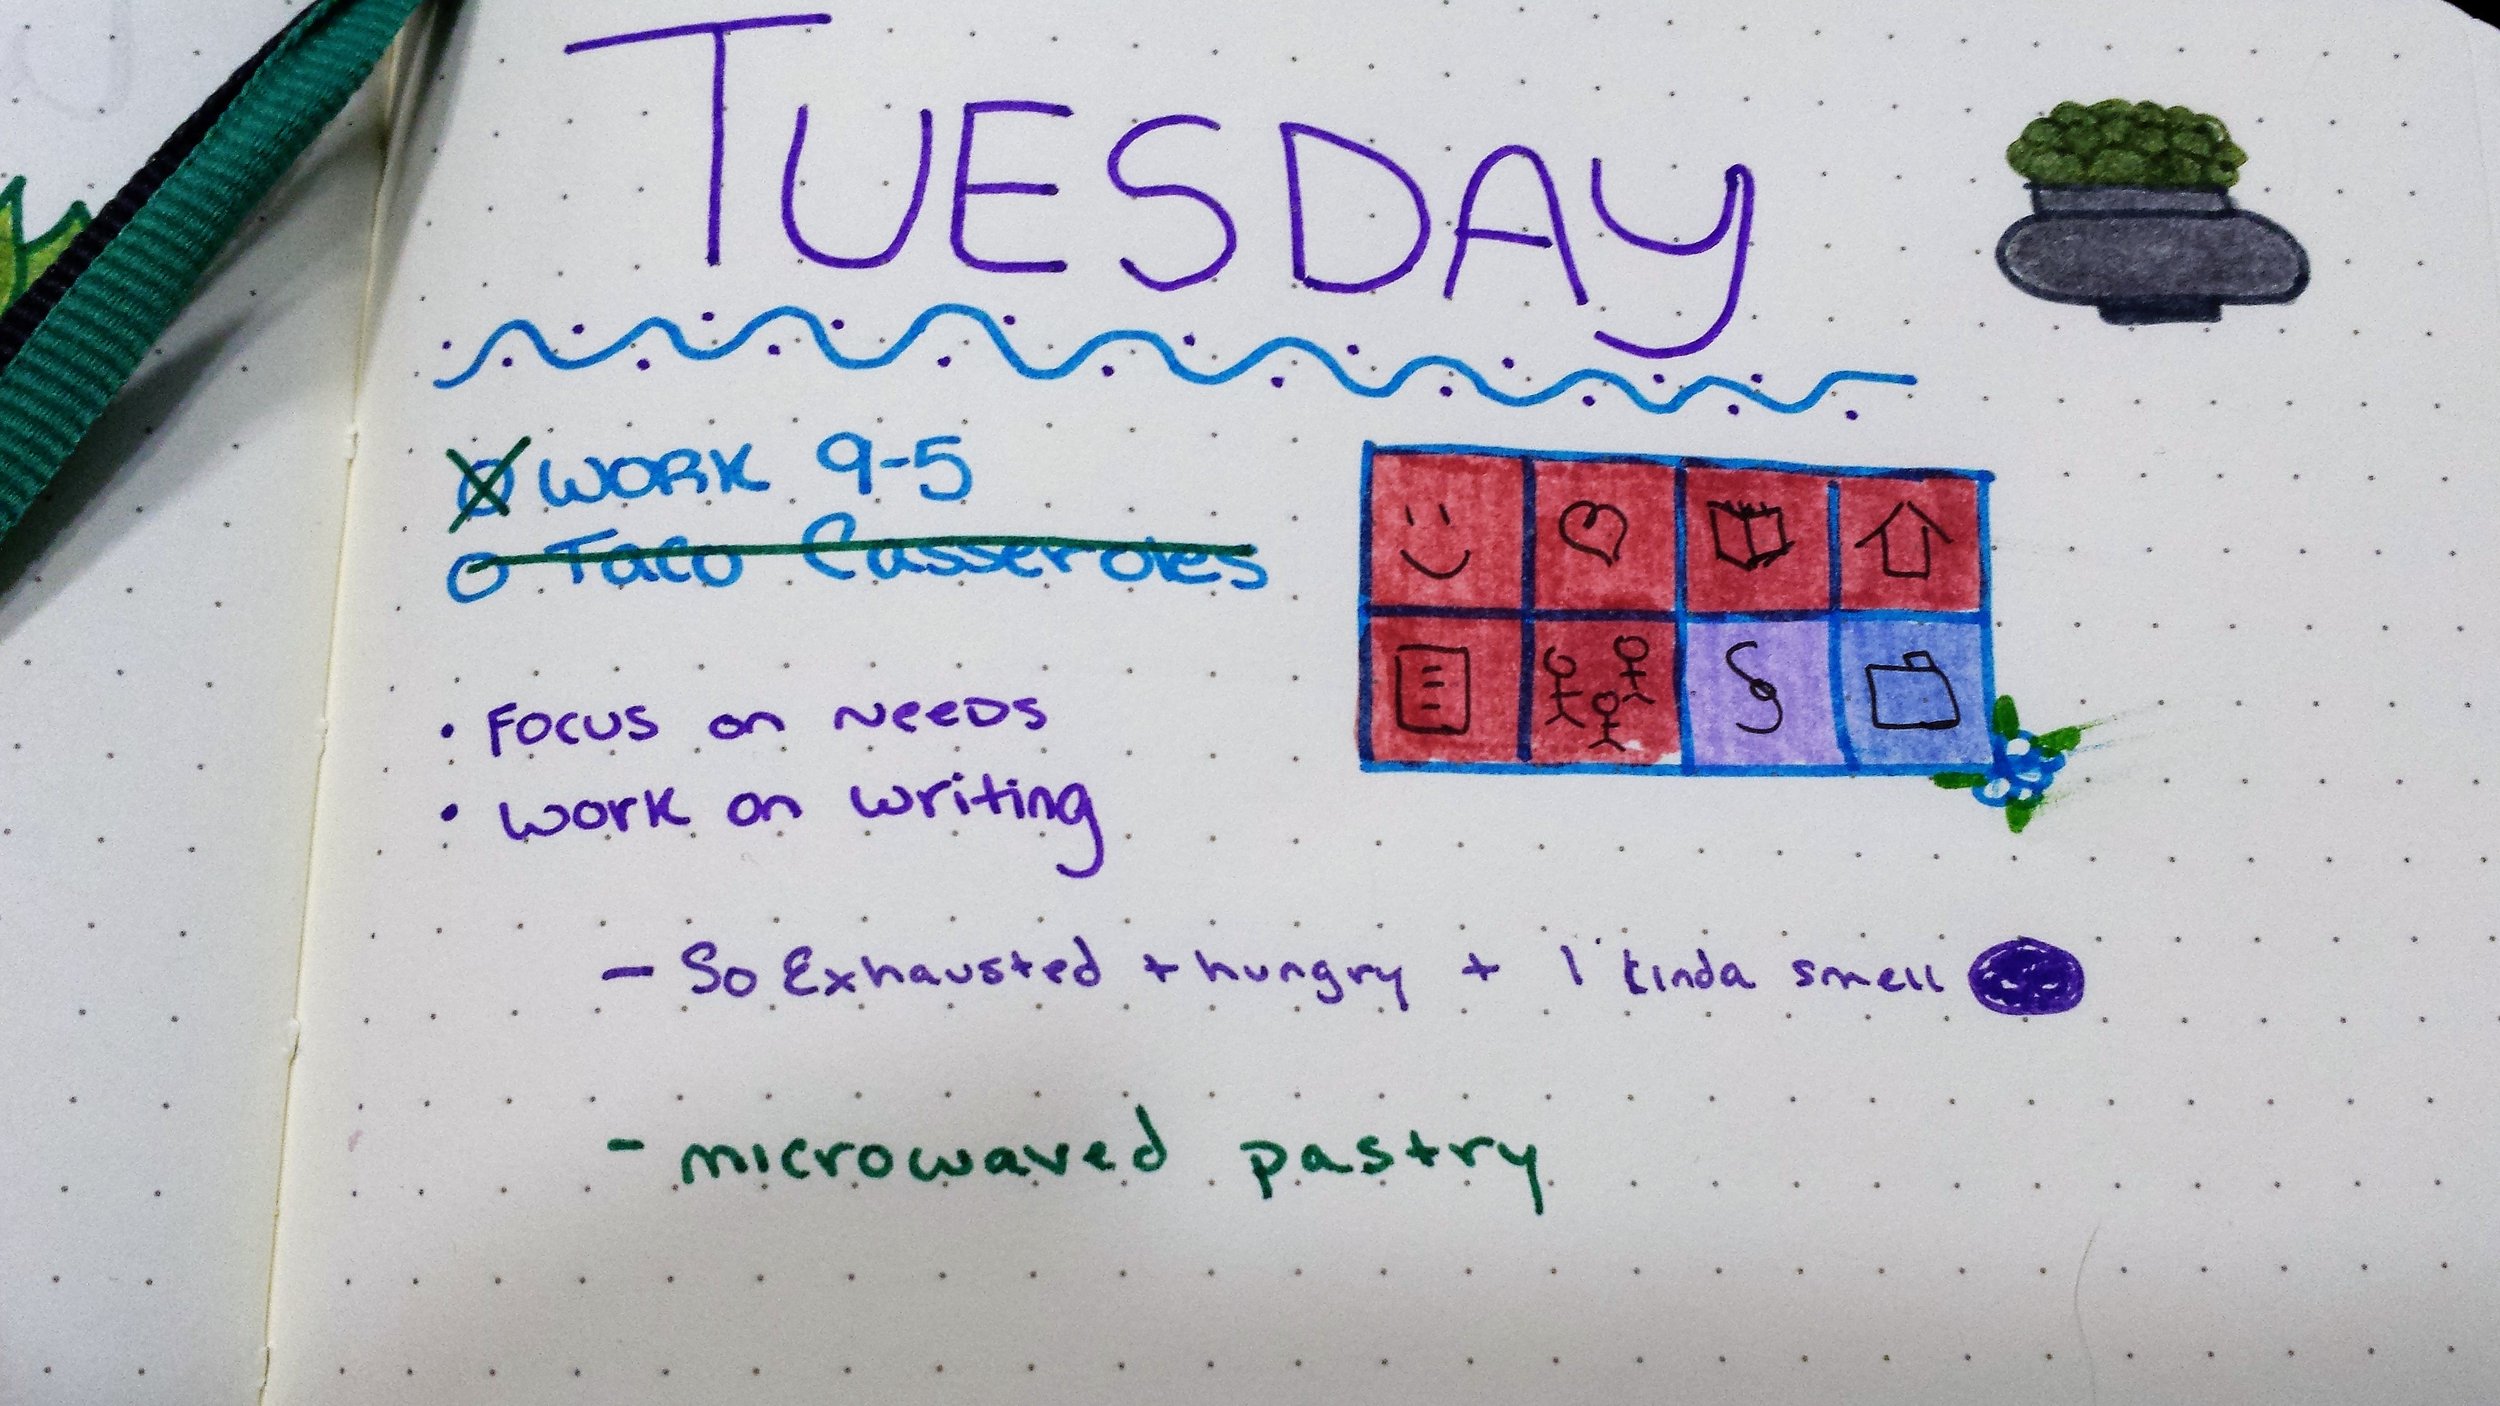 TUESDAY
WORK 9-5
Taco Casseroles
• Focus on Needs
• Work on writing
- So Exhausted + hungry + I kinda smell
- microwaved pastry